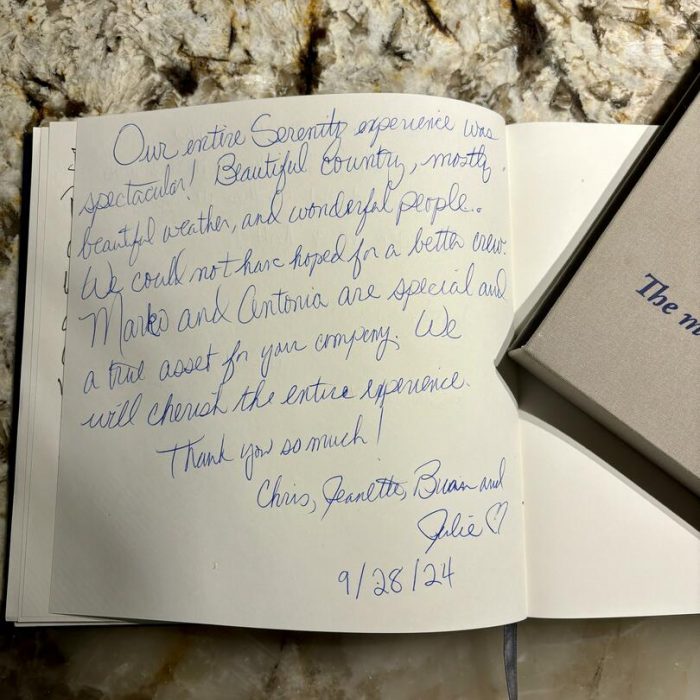 Our entire Serenity experience was
spectacular! Beautiful Country, mostly
beautiful weather, and wonderful people..
We could not have hoped for a better crew.
Marko and Antonia are special and
a true asset for your company. We
will cherish the entire experience.
Thank you so much!
Chris, Jeanette, Brian and
Julie ♡
9/28/24
The m